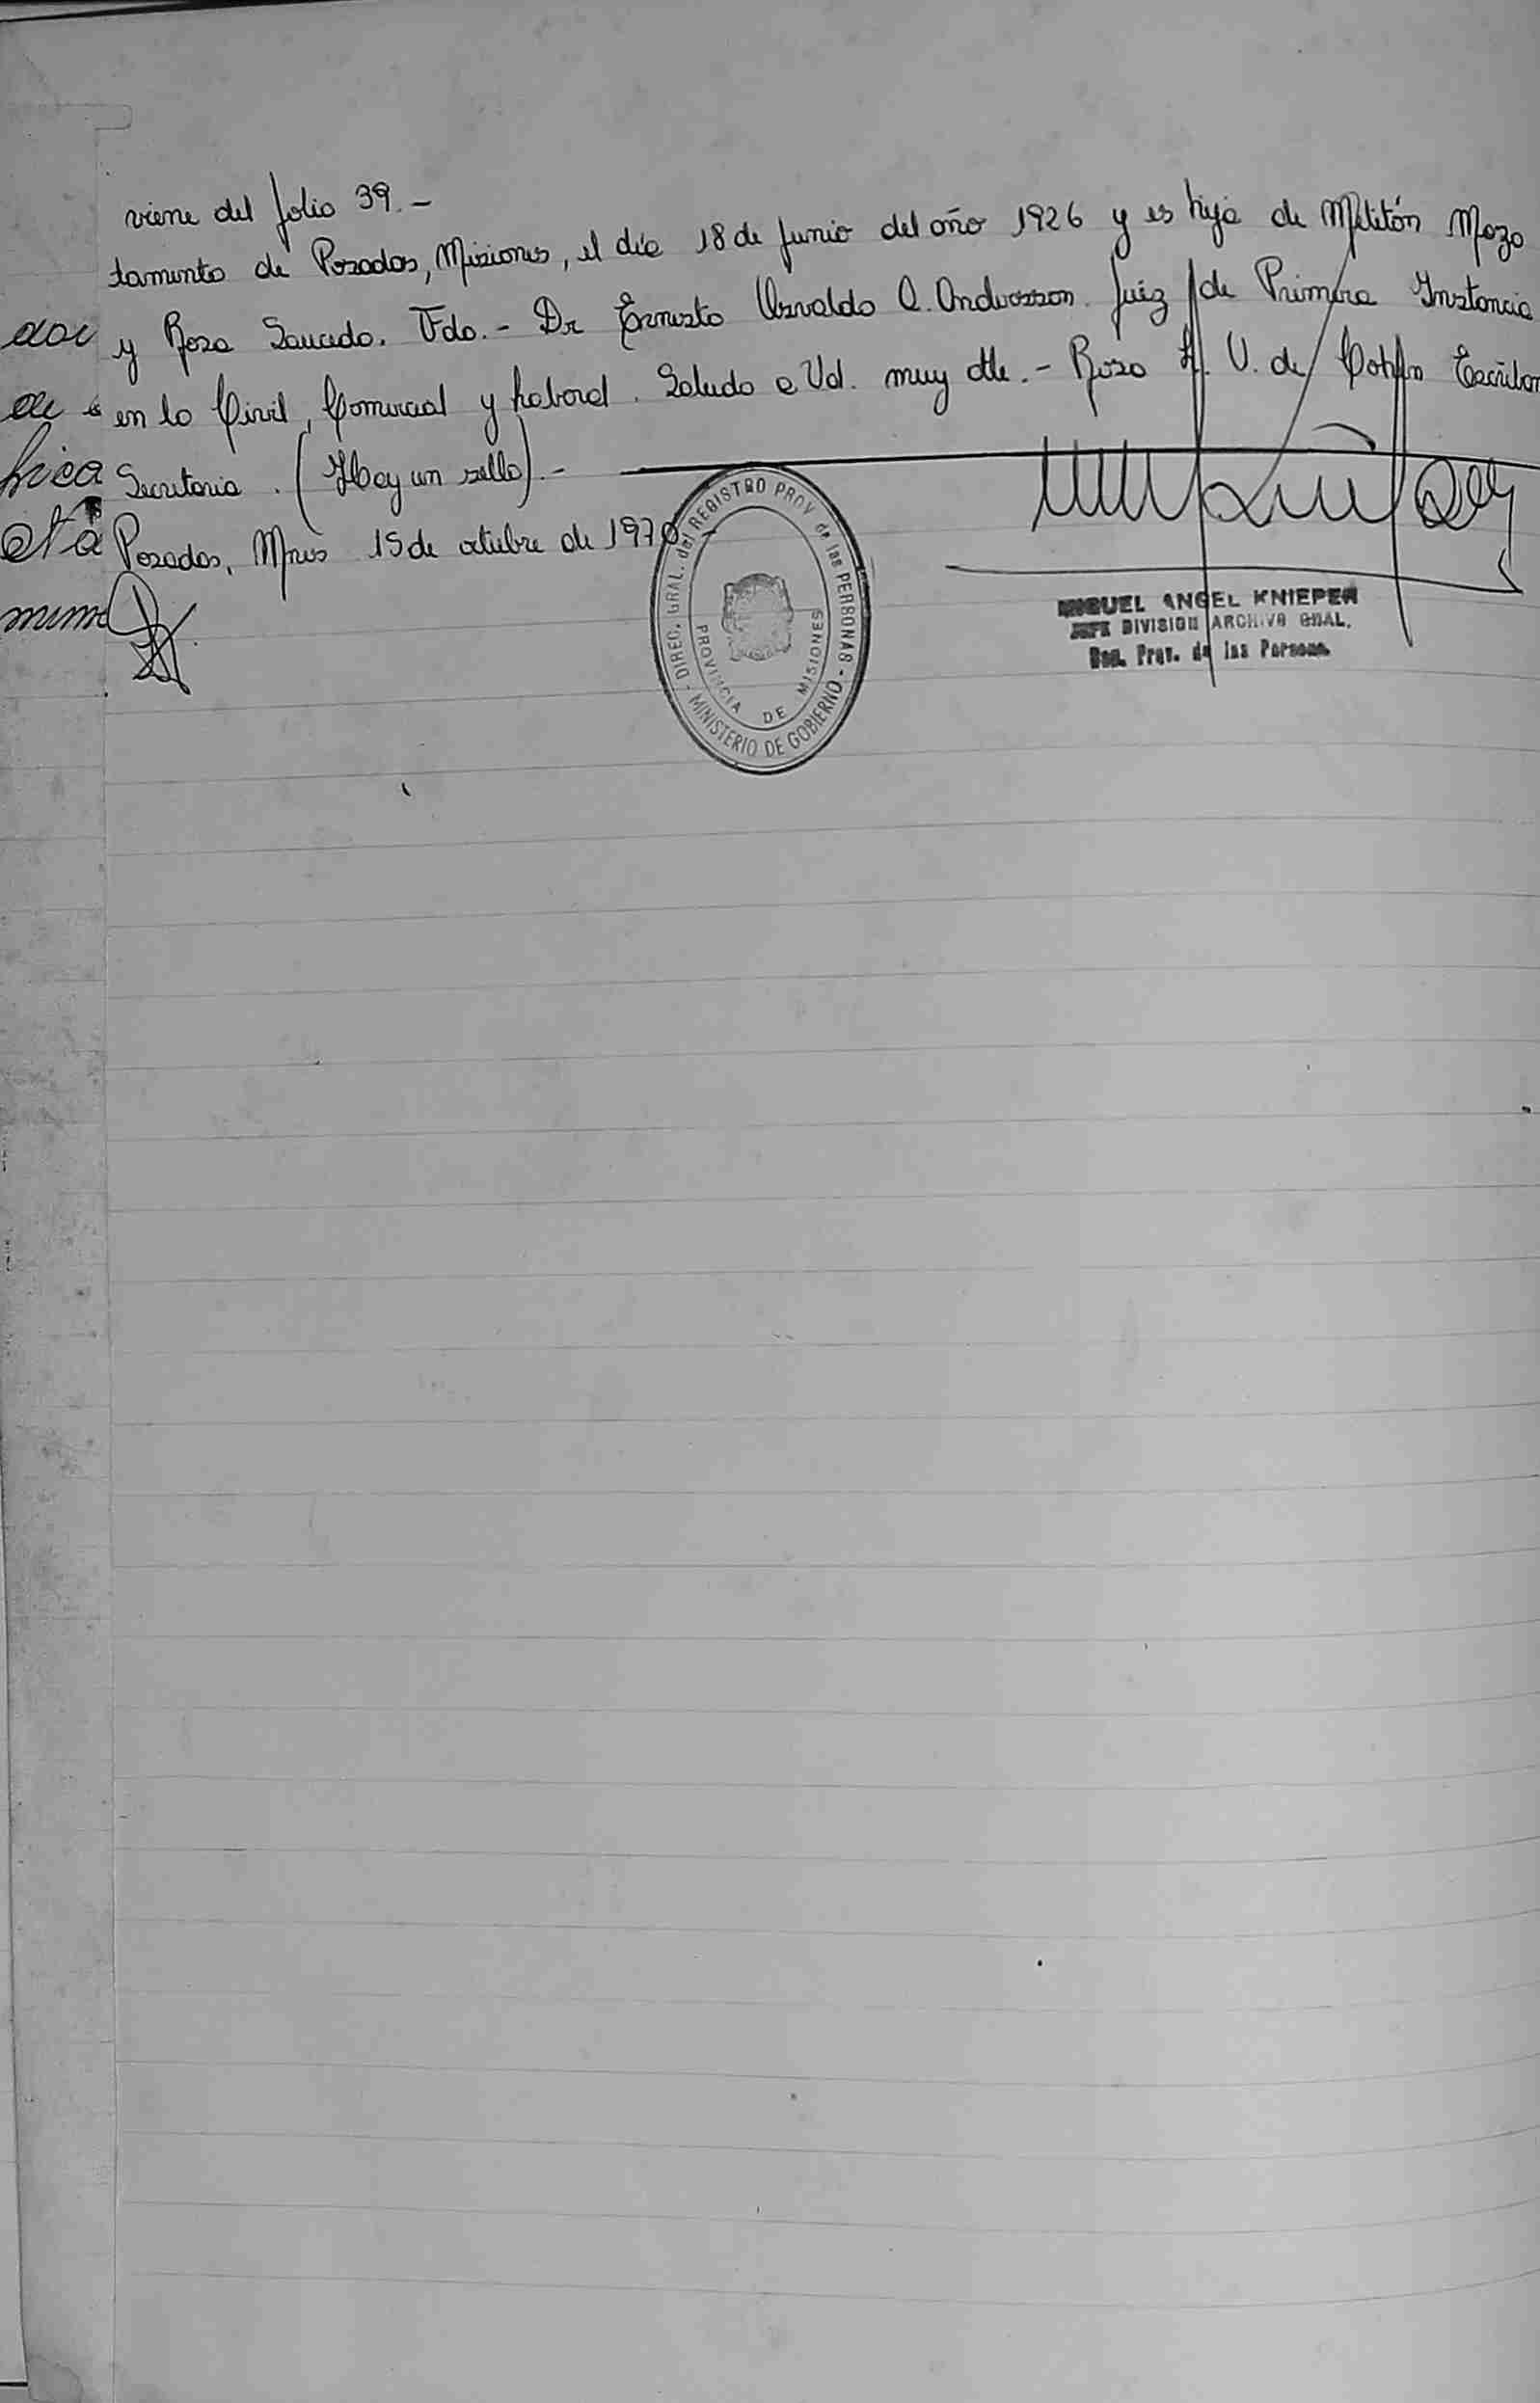 viene del folio 39.-
tamento de Posadas, Misiones, el día 18 de Junio del año 1926 y es hija de Melitón Mozo
y Rosa Saucedo. Fdo.- Dr Ernesto Osvaldo A. Andersson. Juez de Primera Instancia
en lo Civil, Comercial y Laboral. Saludo a Ud. muy atte.- Rosa V. de Escriban
Secretaria. (Hay un sello).-
Posadas, Mnes 15 de octubre de 1970.-
DIREC. GRAL. del REGISTRO PROV de las PERSONAS - MINISTERIO DE GOBIERNO -
PROVINCIA DE MISIONES
MIGUEL ANGEL KNIEPER
JEFE DIVISION ARCHIVO GRAL.
Prov. de las Personas